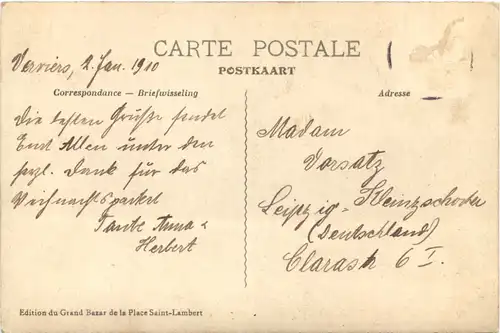 Verviers, 2. Jan. 1910
CARTE POSTALE
POSTKAART
Correspondance — Briefwisseling
Adresse
Die besten Grüße sendet
Euch Allen unter dem
herzl. Dank für das
Weihnachtspacket
Tante Anna &
Herbert
Madam
Vorsatz
Leipzig-Kleinzschocher
(Deutschland)
Clarastr. 6 I.
Edition du Grand Bazar de la Place Saint-Lambert